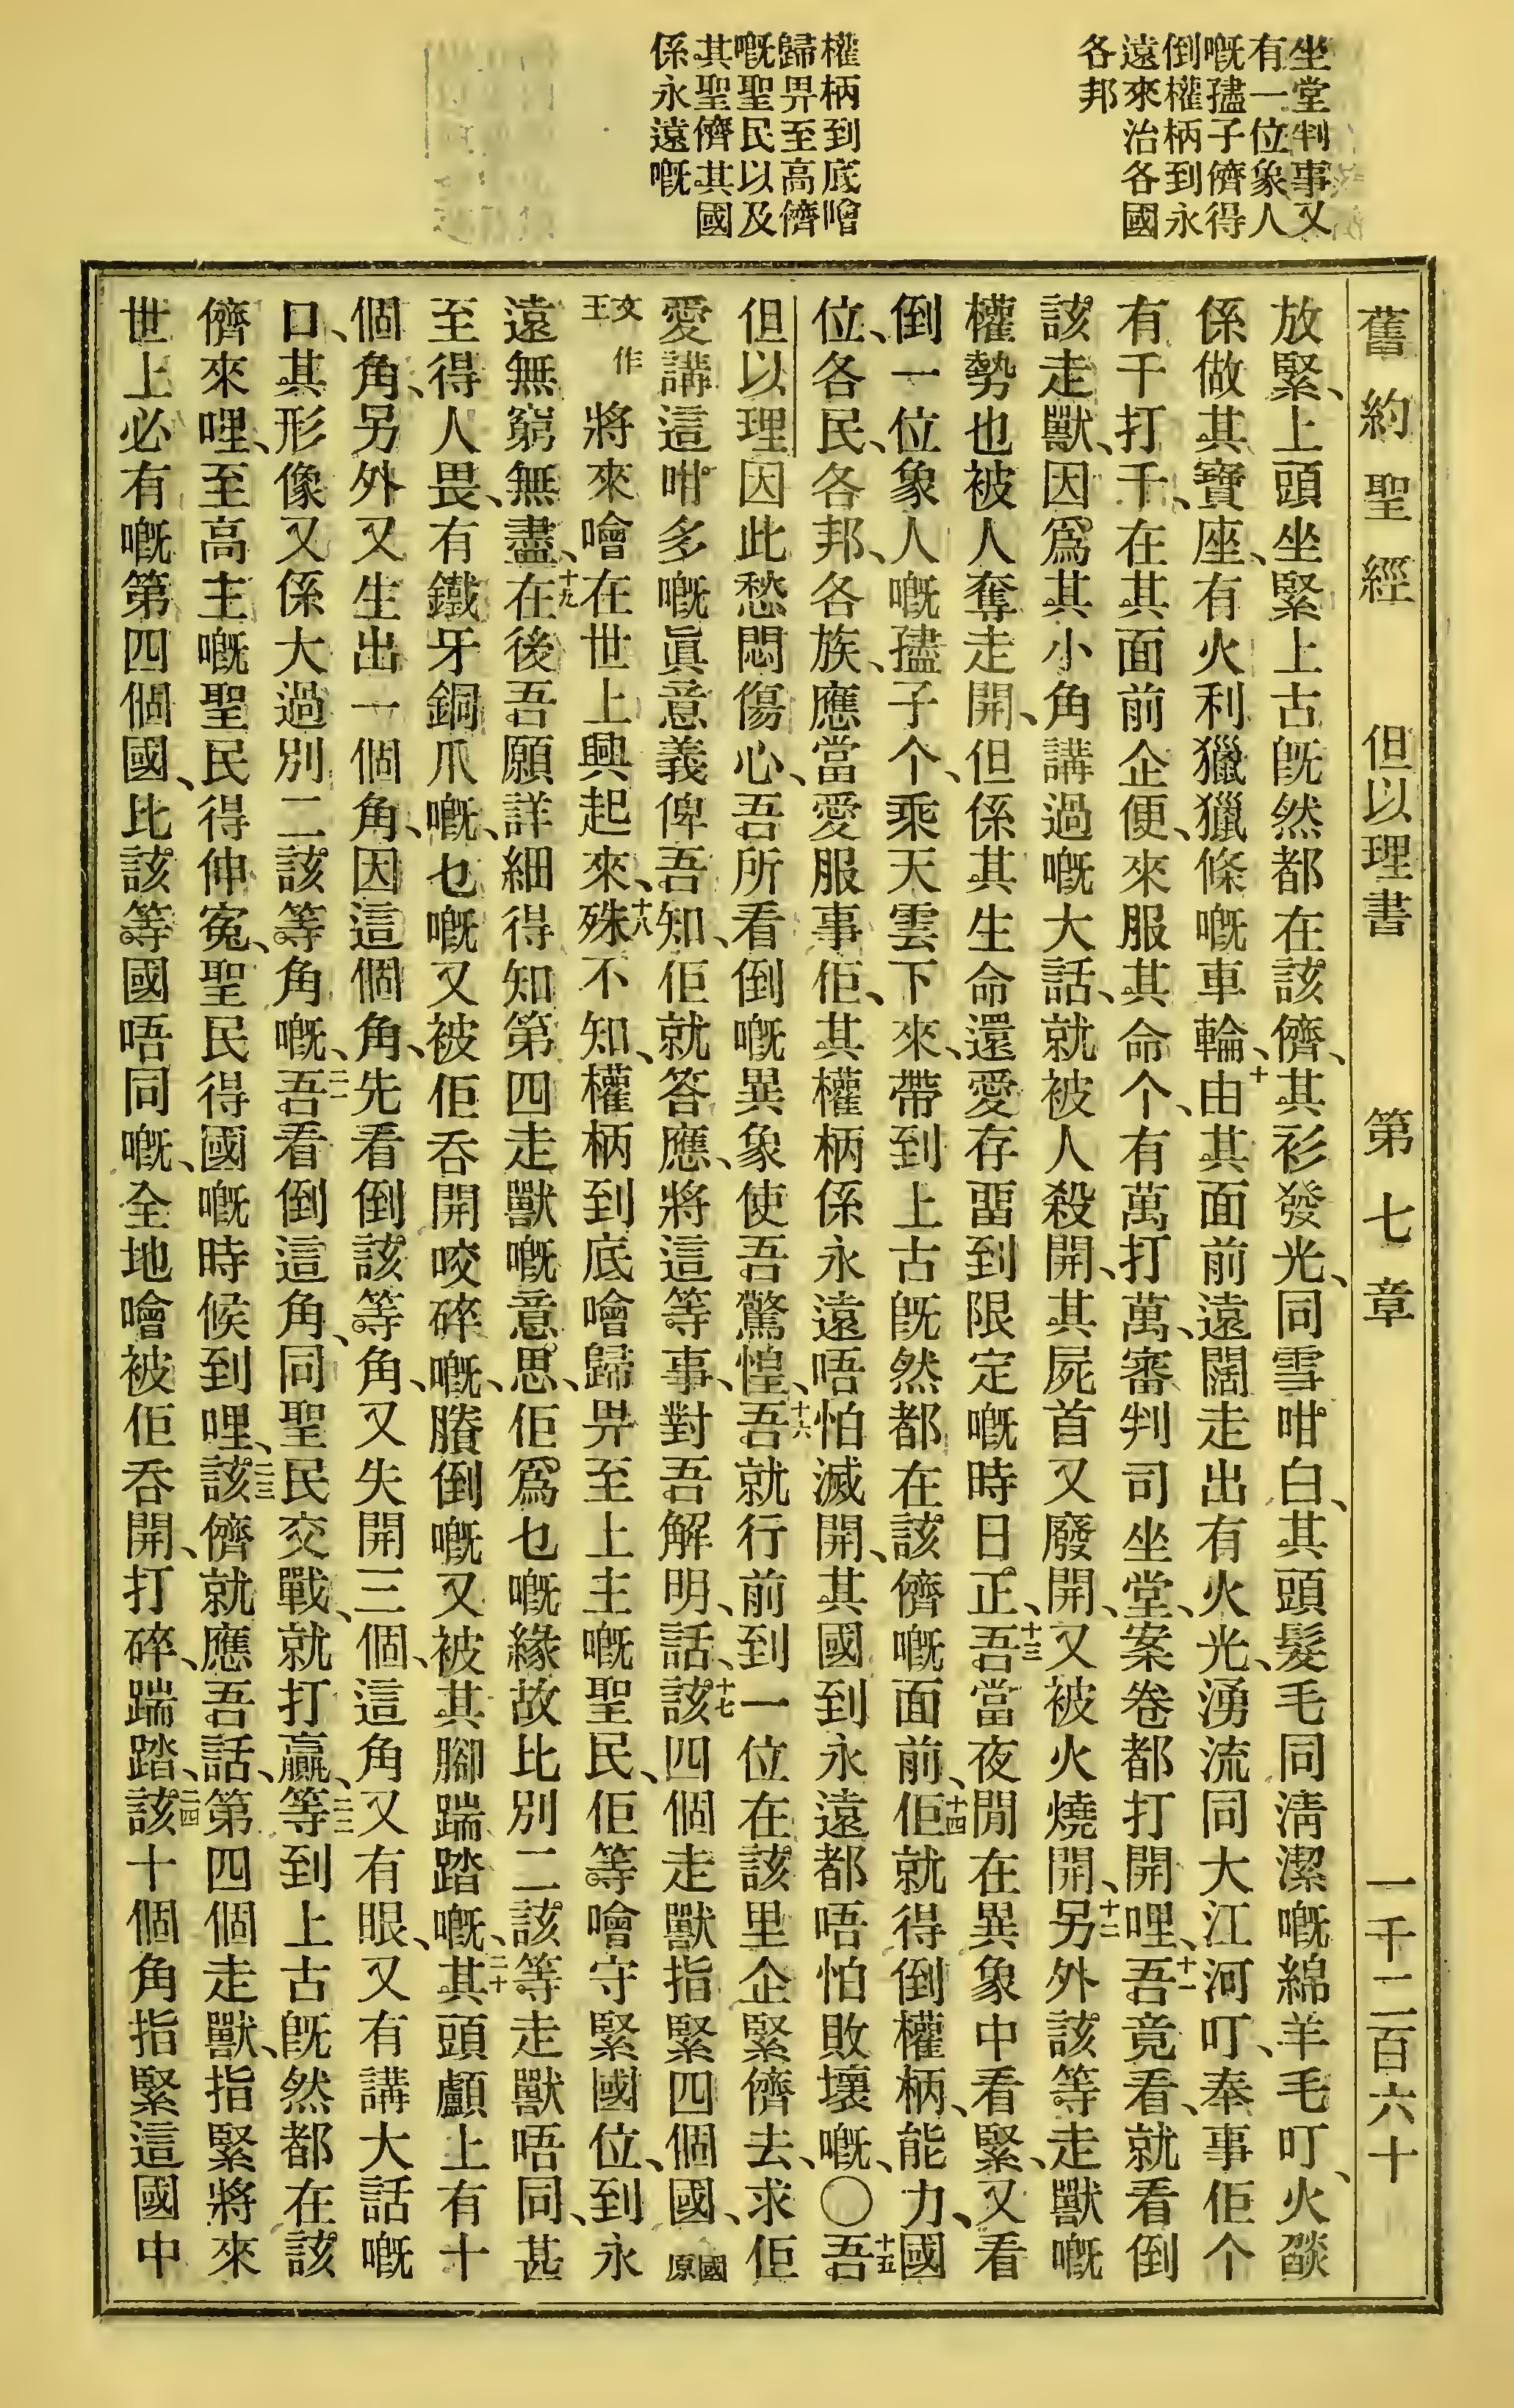 坐堂判事又
有一位象人
嘅孻子儕得
倒權柄到永
遠來治各國
各邦
權柄到底噲
歸畀至高儕
嘅聖民以及
其聖儕其國
係永遠嘅
舊約聖經 但以理書 第七章 一千二百六十
放緊、上頭坐緊上古旣然都在該儕、其衫發光、同雪咁白、其頭髮毛同淸潔嘅綿羊毛叮、火燄
係做其寶座、有火利獵獵條嘅車輪、十由其面前遠闊走出有火光、湧流同大江河叮、奉事佢个
有千打千、在其面前企便、來服其命个、有萬打萬、審判司坐堂、案卷都打開哩、十一吾竟看、就看倒
該走獸、因爲其小角講過嘅大話、就被人殺開、其屍首又廢開、又被火燒開、十二另外該等走獸嘅
權勢也被人奪走開、但係其生命還愛存畱到限定嘅時日正、十三吾當夜閒在異象中看緊、又看
倒一位象人嘅孻子个、乘天雲下來、帶到上古旣然都在該儕嘅面前、十四佢就得倒權柄、能力、國
位、各民、各邦、各族、應當愛服事佢、其權柄係永遠唔怕滅開、其國到永遠都唔怕敗壞嘅、〇十五吾
但以理因此愁悶傷心、吾所看倒嘅異象使吾驚惶、十六吾就行前到一位在該里企緊儕去、求佢
愛講這咁多嘅眞意義俾吾知、佢就答應、將這等事、對吾解明、話、十七該四個走獸指緊四個國、國原
文作王將來噲在世上興起來、十八殊不知、權柄到底噲歸畀至上主嘅聖民、佢等噲守緊國位、到永
遠無窮無盡、十九在後吾願詳細得知第四走獸嘅意思、佢爲乜嘅緣故比別二該等走獸唔同、甚
至得人畏、有鐵牙銅爪嘅、乜嘅又被佢吞開咬碎嘅、賸倒嘅又被其腳踹踏嘅、二十其頭顱上有十
個角、另外又生出一個角、因這個角、先看倒該等角、又失開三個、這角又有眼、又有講大話嘅
口、其形像又係大過別二該等角嘅、二一吾看倒這角、同聖民交戰、就打贏、二二等到上古旣然都在該
儕來哩、至高主嘅聖民得伸寃、聖民得國嘅時候到哩、二三該儕就應吾話、第四個走獸、指緊將來
世上必有嘅第四個國、比該等國唔同嘅、全地噲被佢吞開、打碎、踹踏、二四該十個角指緊這國中